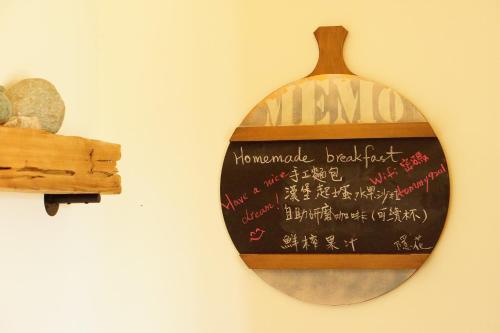 MEMO
Homemade breakfast
手工麵包
漢堡起士蛋水果沙拉
自助研磨咖啡(可續杯)
鮮榨果汁
隱花
Have a nice
dream!
Wifi 密碼